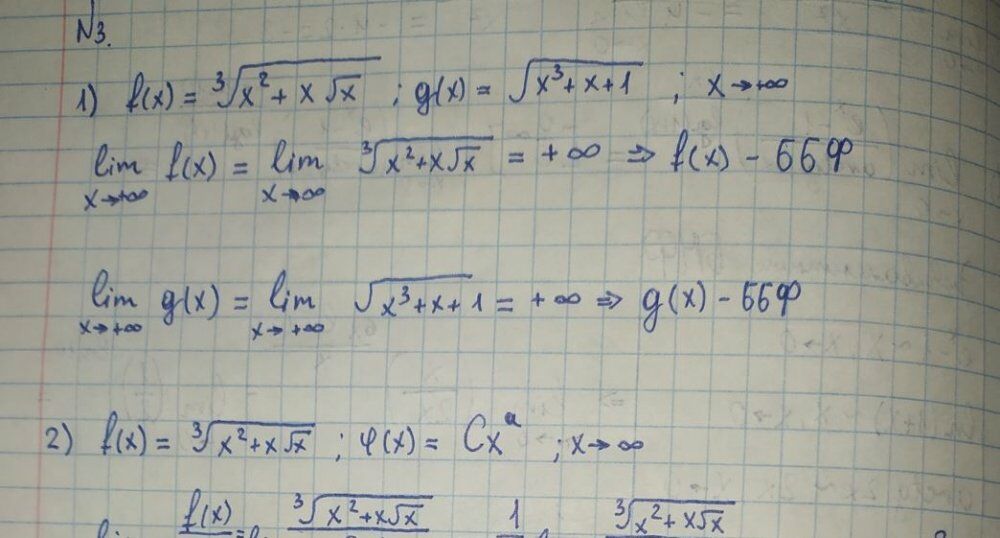 N3.
1) f(x) = ∛(x² + x√x) ; g(x) = √(x³ + x + 1) ; x → +∞
lim x→+∞ f(x) = lim x→∞ ∛(x² + x√x) = +∞ ⇒ f(x) - ббф
lim x→+∞ g(x) = lim x→+∞ √(x³ + x + 1) = +∞ ⇒ g(x) - ббф
2) f(x) = ∛(x² + x√x) ; φ(x) = Cxᵃ ; x → ∞
f(x) ∛(x² + x√x) 1 ∛(x² + x√x)